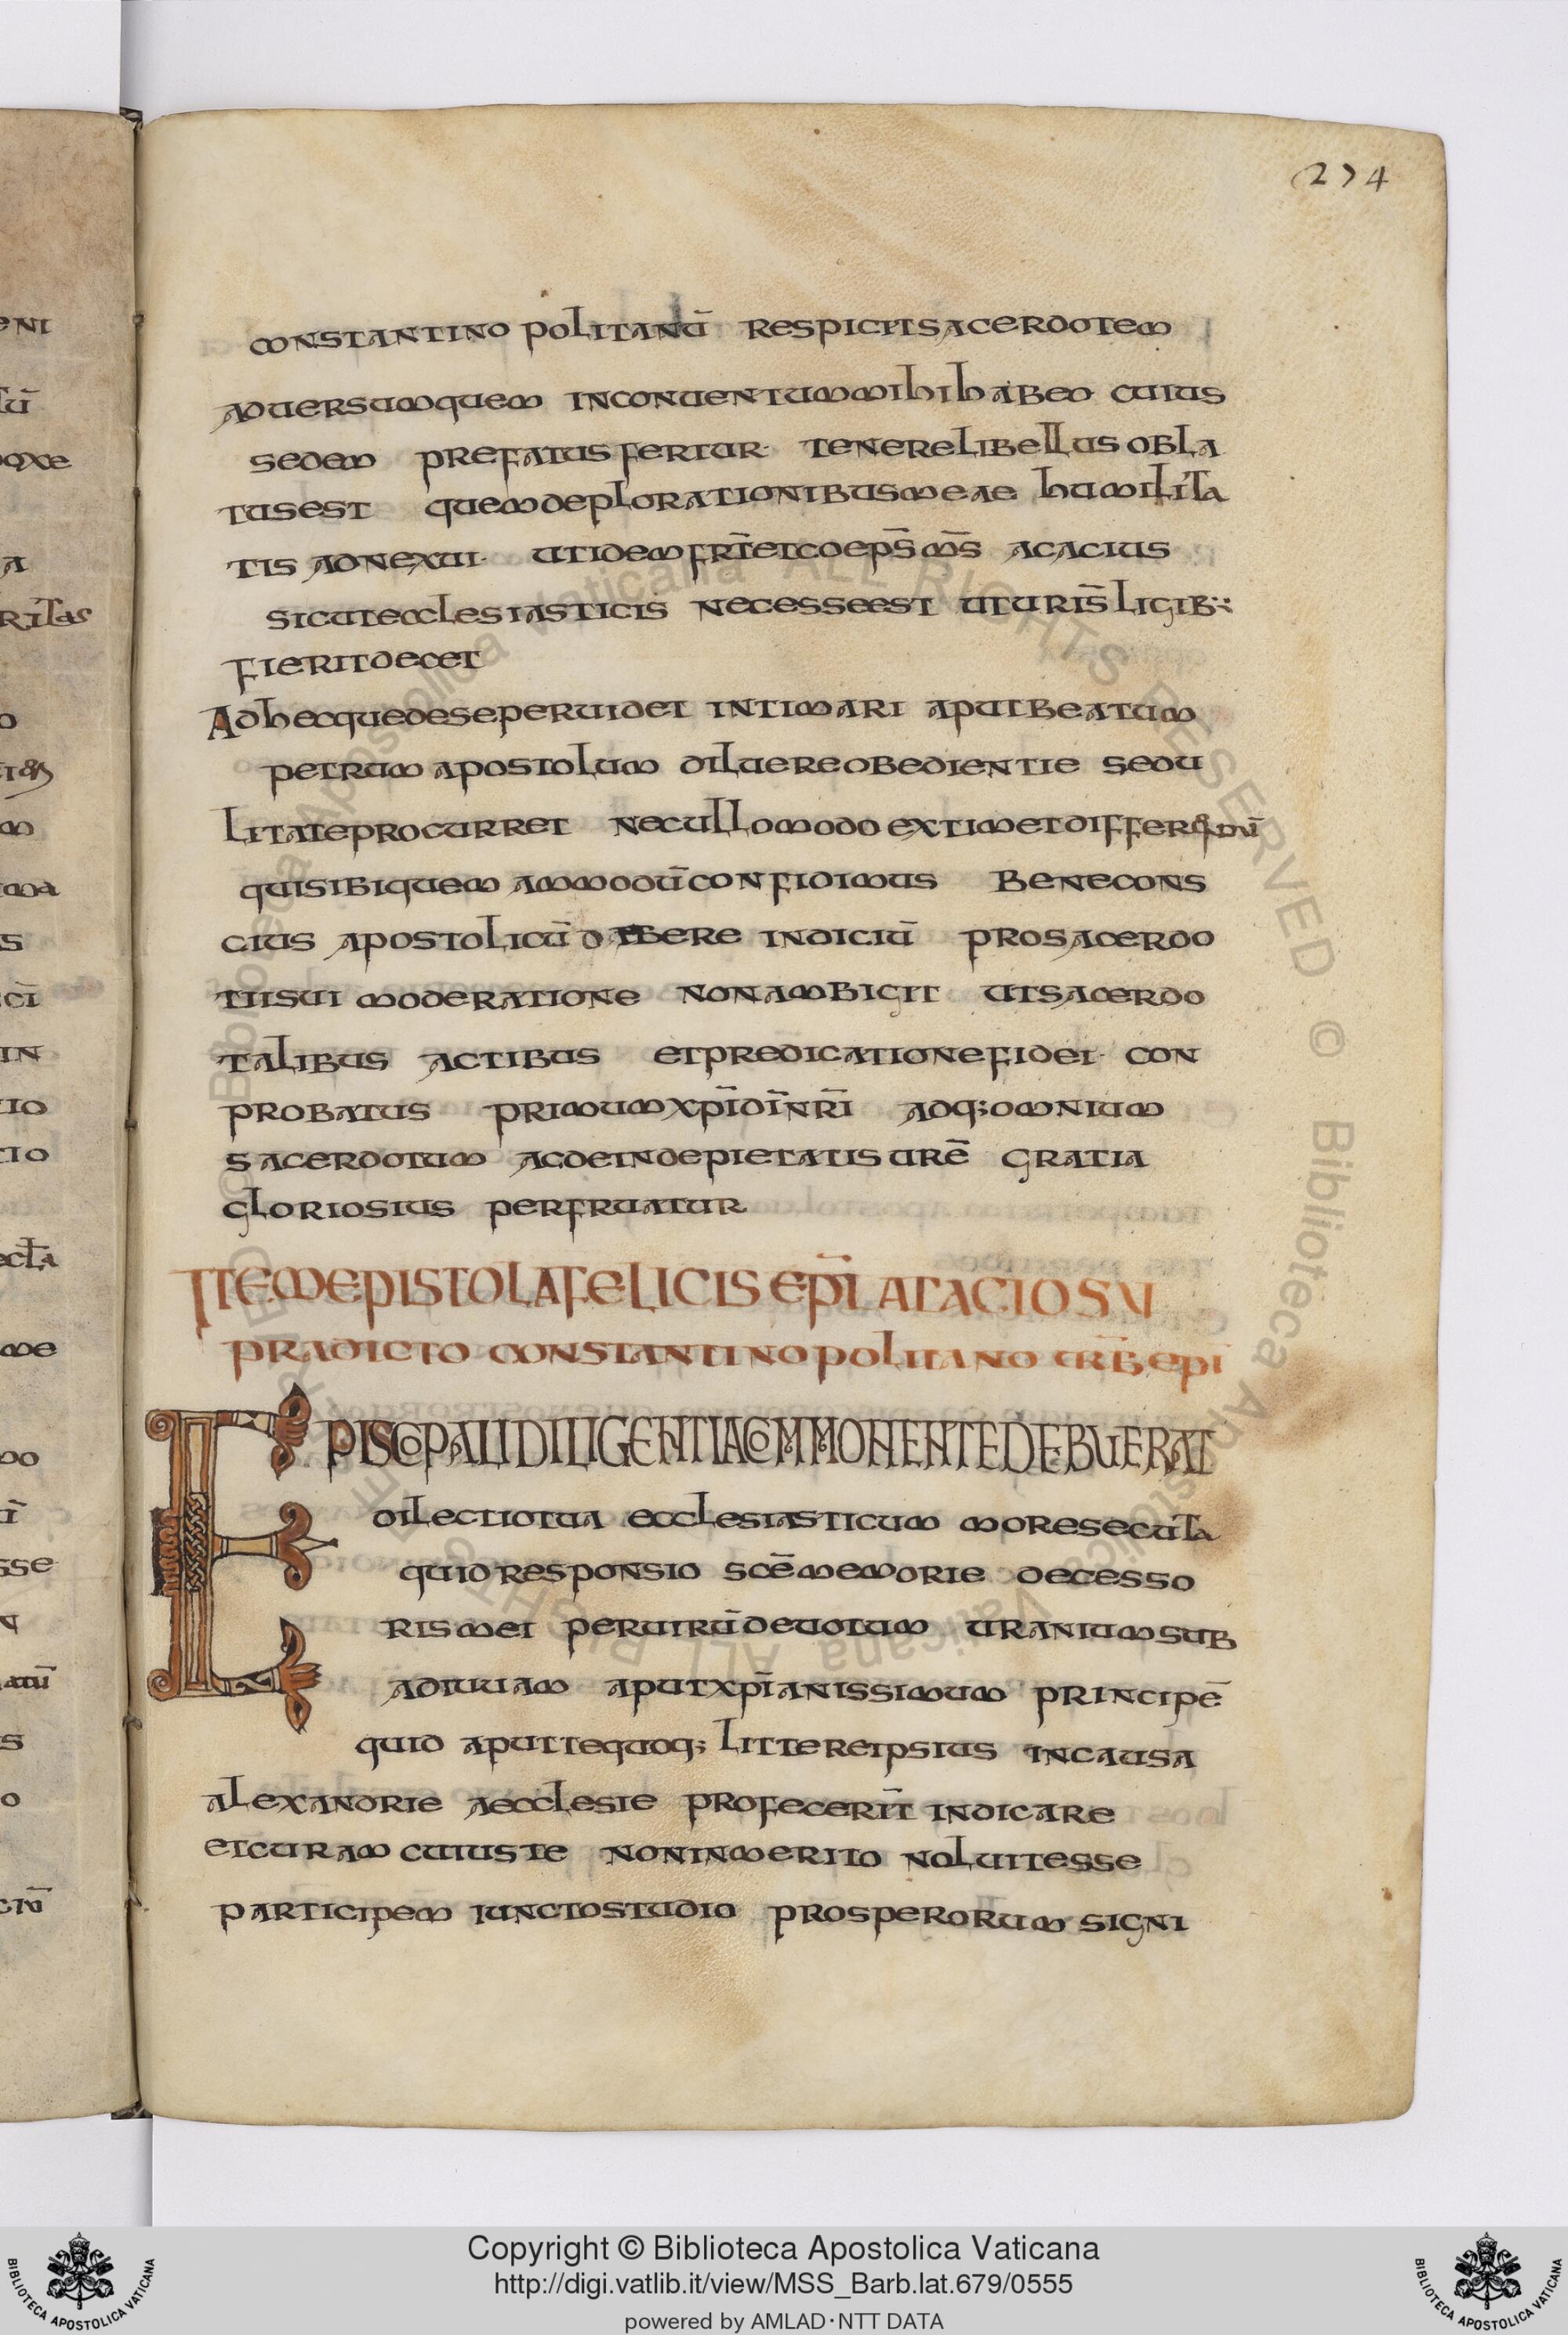 274
constantino politanū respicitsacerdotem
aduersumquem inconuentummihihabeo cuius
sedem prefatusfertur· tenerelibellusobla
tusest quemdeplorationibusmeae humilita
tis adnexui· utidemfr̄etcoep̄s m̄s acacius
sicutecclesiasticis necesseest uturis̄ligib:
fieritdecet
Adhecquedeseperuidet intimari aputbeatum
petrum apostolum diluereobedientie sedu
litateprocurret necullomodoextimetdifferendū
quisibiquem ammodūconfidimus benecons
cius apostolicū dabere indiciū prosacerdo
tiisui moderatione nonambigit utsacerdo
talibus actibus etpredicationefidei· con
probatus primumxp̄id̄in̄rī adq;omnium
sacerdotum acdeindepietatisurē gratia
gloriosius perfruatur
ITemepistolafelicis ep̄i atacio su
pradicto constantinopolitano urb̄ epī
EPISCOPALIDILIGENTIACOMMONENTEDEBUERAT
dilectiotua ecclesiasticum moresecuta
quidresponsio scēmemorie decesso
rismei peruirūdeuotum uraniumsub
adiuuam aputxp̄ianissimum principē
quid aputtequoq; littereipsius incausa
alexandrie aecclesie profecerīt indicare
etcuram cuiuste noninmerito noluitesse
participem iunctostudio prosperorum signi
eni
oqxe
a
ritas
o
m
ima
s
cī
in
tio
tio
ecta
me
sse
atū
s
o
Copyright © Biblioteca Apostolica Vaticana
http://digi.vatlib.it/view/MSS_Barb.lat.679/0555
powered by AMLAD·NTT DATA
BIBLIOTECA APOSTOLICA VATICANA
BIBLIOTECA APOSTOLICA VATICANA